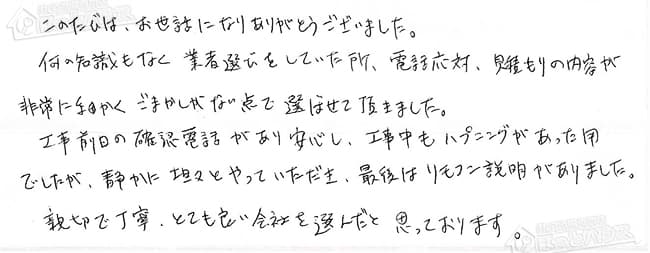 このたびは、お世話になりありがとうございました。
何の知識もなく業者選びをしていた所、電話応対、見積もりの内容が
非常に細かくごまかしがない点で選ばせて頂きました。
工事前日の確認電話があり安心し、工事中もハプニングがあった用
でしたが、静かに坦々とやっていただき、最後はリモコン説明がありました。
親切で丁寧、とても良い会社を選んだと思っております。